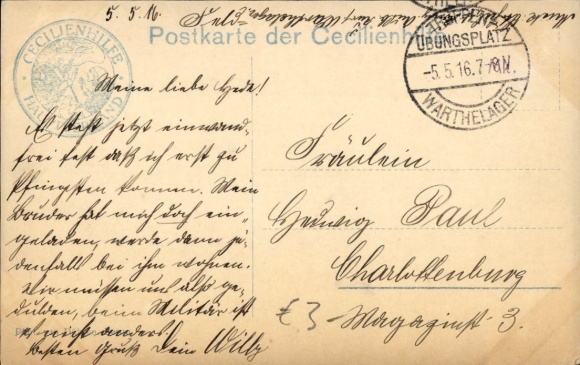 5. 5. 16.
Feld
Postkarte der Cecilienhilfe
CECILIENHILFE
ÜBUNGSPLATZ
-5.5.16.7-8V.
WARTHELAGER
Meine liebe Hede!
Es steht jetzt einwand-
frei fest daß ich erst zu
Pfingsten komme. Mein
Bruder hat mich doch ein-
geladen, werde dann je-
denfalls bei ihm wohnen.
Wir müssen uns also ge-
dulden, beim Militär ist
es nicht anders!
besten Gruß Dein Willy
Fräulein
Hedwig Paul
Charlottenburg
Magazinst. 3.